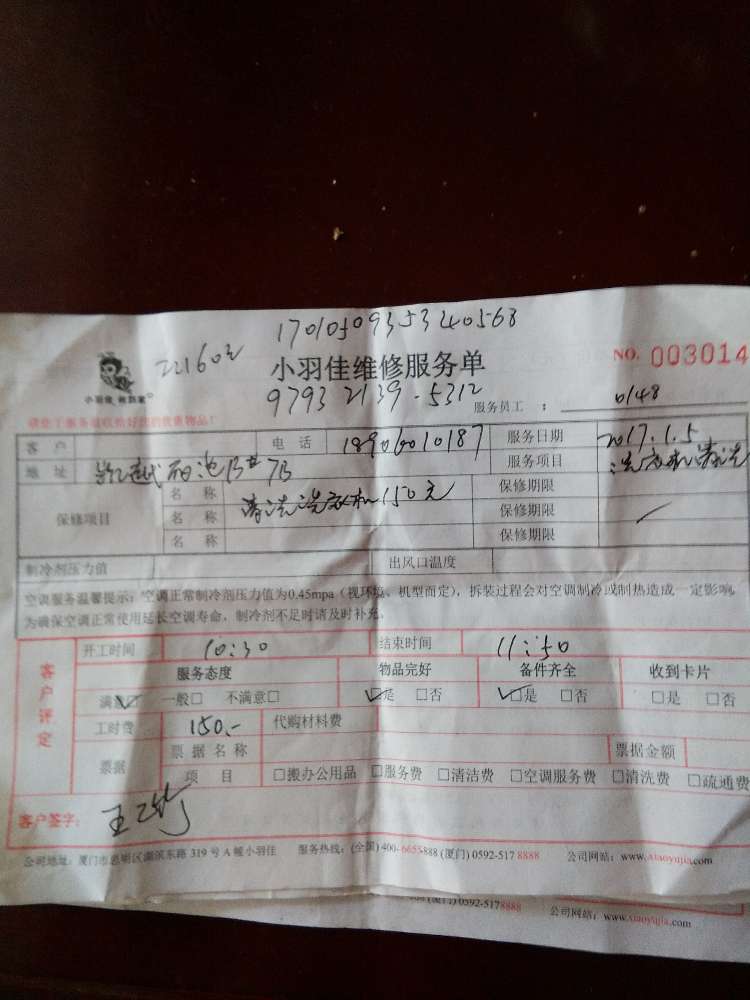 1701050935340568
221602
小羽佳维修服务单
NO. 003014
小羽佳 做到家
9793 2139-5312
服务员工 : 0148
请您于服务前收拾好您的贵重物品!
客 户 电 话 18906010187 服务日期 2017.1.5
地 址 7B 服务项目 洗衣机清洗
保修项目
名 称 清洗洗衣机150元 保修期限
名 称 保修期限
名 称 保修期限
制冷剂压力值 出风口温度
空调服务温馨提示:空调正常制冷剂压力值为0.45mpa(视环境、机型而定),拆装过程会对空调制冷或制热造成一定影响,
为确保空调正常使用延长空调寿命,制冷剂不足时请及时补充。
客户评定
开工时间 10:30 结束时间 11:50
服务态度 物品完好 备件齐全 收到卡片
满意□ 一般□ 不满意□ □是 □否 □是 □否 □是 □否
工时费 150.- 代购材料费
票据
票据名称 票据金额
项 目 □搬办公用品 □服务费 □清洁费 □空调服务费 □清洗费 □疏通费
客户签字:
公司地址:厦门市思明区湖滨东路 319 号 A 幢小羽佳 服务热线:(全国)400-6655888 (厦门) 0592-517 8888 公司网站:www.xiaoyujia.com
(厦门) 0592-5178888 公司网站:www.xiaoyujia.com